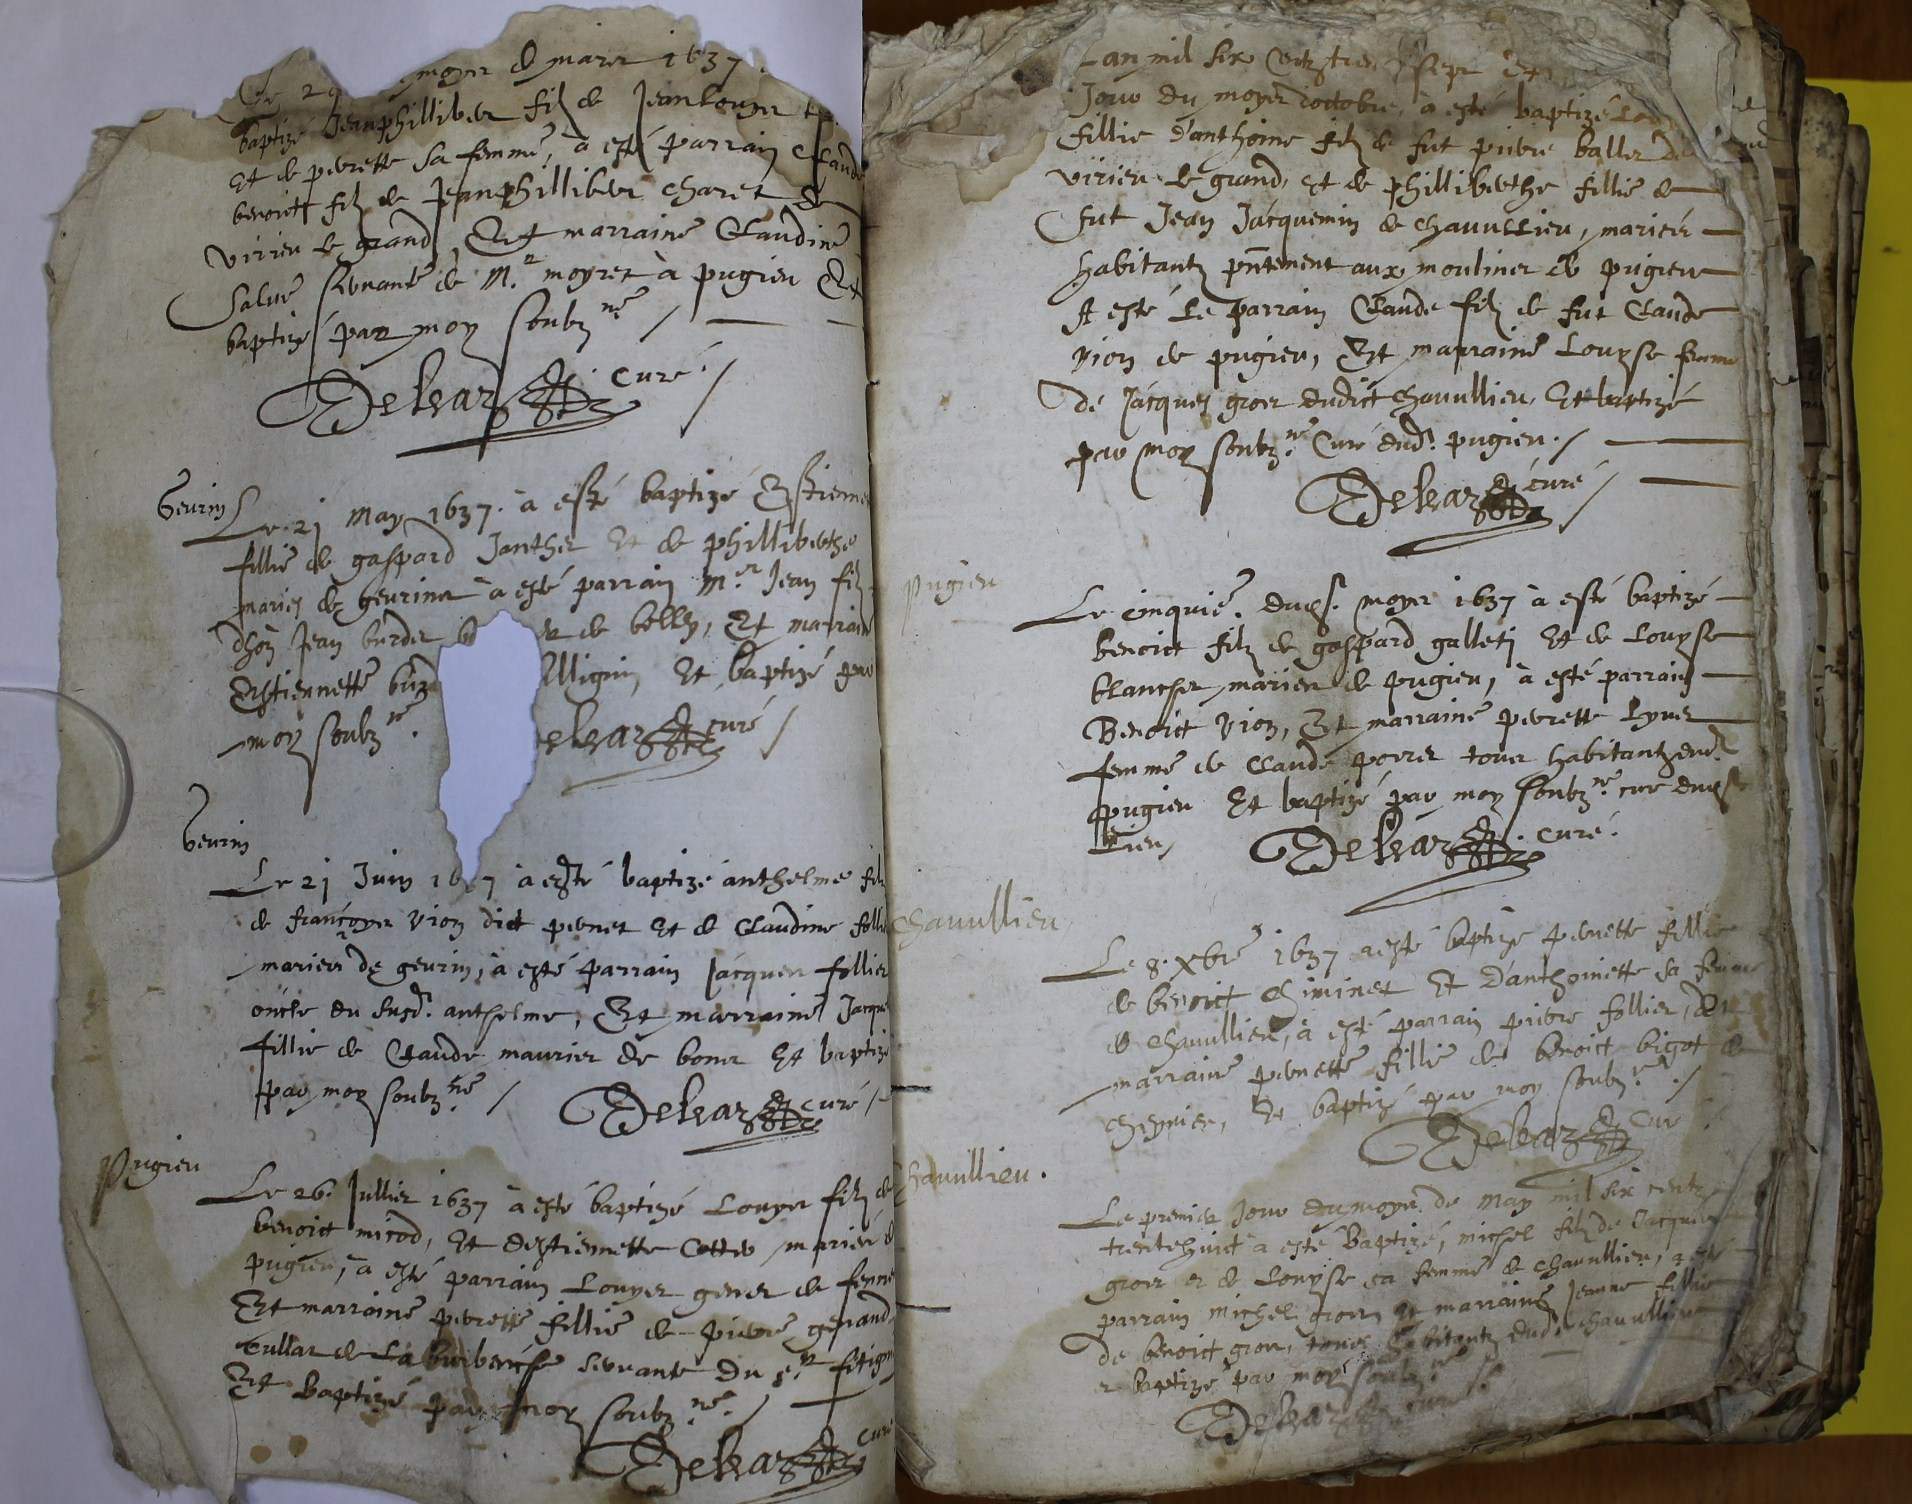 moys de mars 1637
baptizé Jeanphillibert filz de Jean Louys
Et de pevrette sa femme, à esté parrain Claude
benoict filz de Jeanphillibert charet de
virieu le grand, Et marraine Claudine
salue servante de M.r moyret à pugieu Et
baptizé par moy soubz.né
Delvaz curé.
Gevrin
Le 21 May 1637. à esté baptizé Estienne
fillie de gaspard Janther Et de phillibverthe
mariez de gevrin à esté parrain M.r Jean filz
Jean burdet de bellȳ, Et marrain
Estiennette Et baptizé par
moy soubz.né
curé
Gevrin
Le 21 Juin 1637 à esté baptizé anthelme filz
de françoys vion dict pernet Et de Claudine follie
mariers de gevrin, à esté parrain Jacques follier
oncle du susd.t anthelme, Et marraine Jacque
fillie de Claude maurier de bons Et baptizé
par moy soubz.né
Delvaz curé
Pugieu
Le 26. Jullies 1637 à esté baptizé Louys filz de
benoict micod, Et destiennette Cottes mariers de
pugieu, à esté parrain Louys de
Et marraine pevrette fillie de pierre
de servante du s.r
Et Baptizé par moy soubz.né
Delvaz curé
Lan mil six Centz trente sept Et
Jour du moys doctobre, à esté baptizé
fillie d'anthoine filz de fut pierre baller de
virieu le grand, et de phillibverthe fillie de
fut Jean Jacquemin de chavullieu, mariers
habitantz pñtement aux moulines de pugieu
A esté le parrain Claude filz de fut Claude
vion de pugieu, Et marraine Louyse femme
de Jacques gros dudict chavullieu, Et baptizé
par moy soubz.né Curé dud.t pugieu.
Delvaz curé
Pugieu
Le cinquie. moys 1637 à esté baptizé
benoict filz de gaspard gallet Et de Louyse
blancher mariers de pugieu, à esté parrain
Benoict vion, Et marraine pevrette
femme de Claude tous habitantz dud.t
pugieu Et baptizé par moy soubz.né curé
Lieu
Delvaz curé.
chavullieu
Le 8. xbre 1637 a esté baptizé pernette fillie
de benoict chiminet Et D'anthoinette sa femme
de chavullieu, à esté parrain pierre follier, Et
marraine pernette fillie de benoict bigot de
cheynieu, Et baptizé par moy soubz.né
Delvaz curé
chavullieu.
Le premier Jour du moys de May mil six centz
trentehuict à esté Baptizé, michel filz de Jacques
gros et de Louyse sa femme de chavullieu, à esté
parrain michel gros Et marraine Jeanne fillie
de benoict gros, tous habitantz dud.t chavullieu
et baptizé par moy soubz.né
Delvaz curé